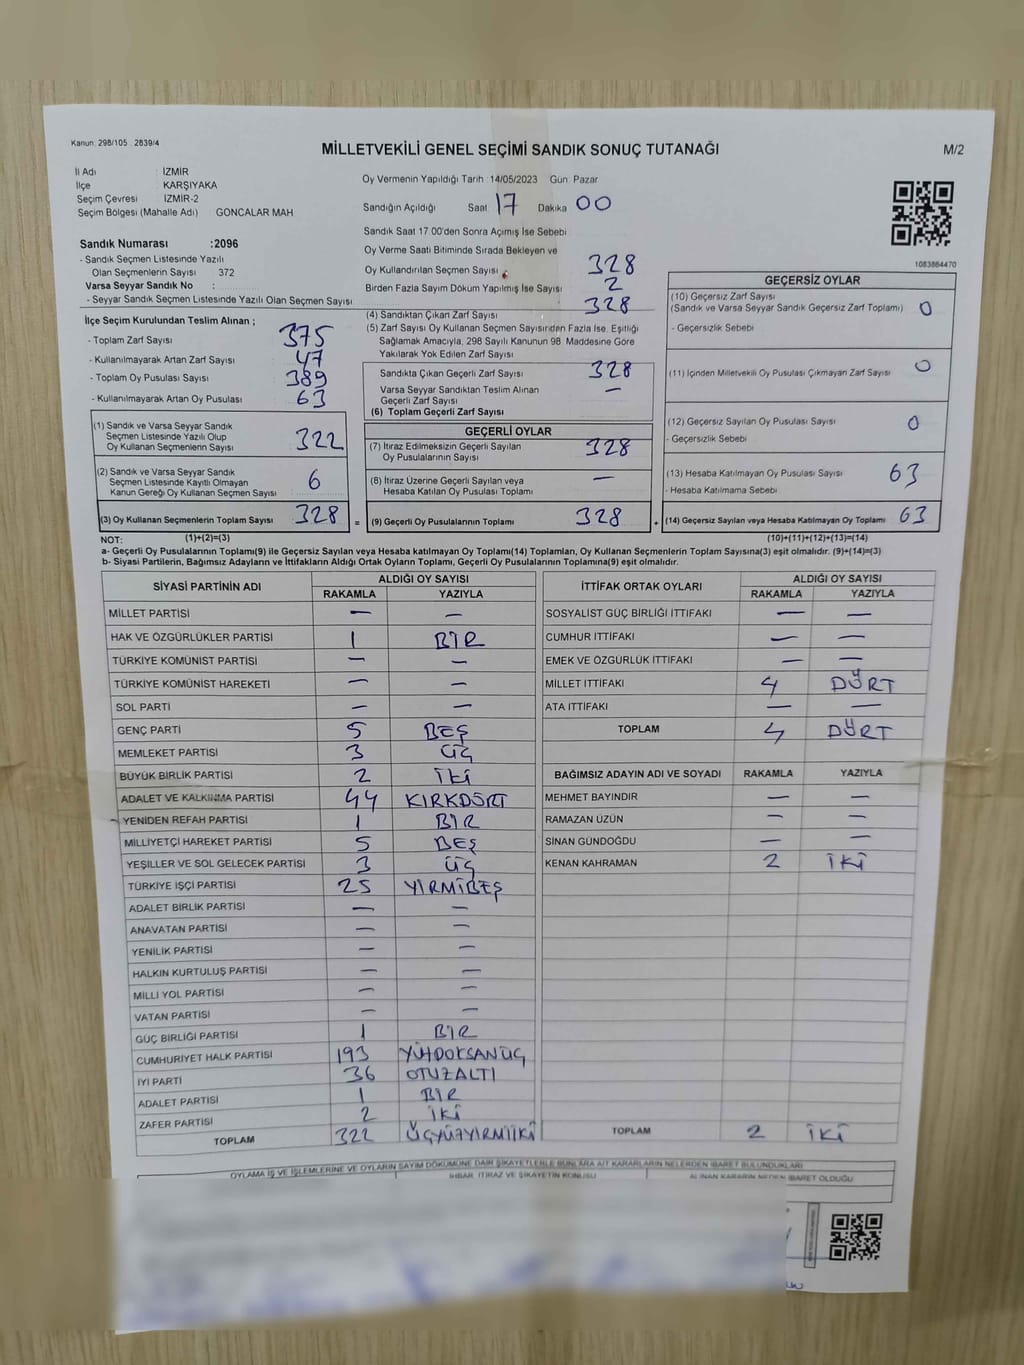 Kanun: 298/105 . 2839/4
MİLLETVEKİLİ GENEL SEÇİMİ SANDIK SONUÇ TUTANAĞI
M/2
İl Adı : İZMİR
İlçe KARŞIYAKA
Seçim Çevresi İZMİR-2
Seçim Bölgesi (Mahalle Adı) GONCALAR MAH
Oy Vermenin Yapıldığı Tarih : 14/05/2023 Gün: Pazar
Sandığın Açıldığı Saat 17 Dakika 00
Sandık Saat 17.00'den Sonra Açımış İse Sebebi
Oy Verme Saati Bitiminde Sırada Bekleyen ve
Oy Kullandırılan Seçmen Sayısı 328
Birden Fazla Sayım Döküm Yapılmış İse Sayısı 2
1083864470
Sandık Numarası :2096
- Sandık Seçmen Listesinde Yazılı
Olan Seçmenlerin Sayısı 372
Varsa Seyyar Sandık No :
- Seyyar Sandık Seçmen Listesinde Yazılı Olan Seçmen Sayısı
İlçe Seçim Kurulundan Teslim Alınan ;
- Toplam Zarf Sayısı 375
- Kullanılmayarak Artan Zarf Sayısı 47
- Toplam Oy Pusulası Sayısı 389
- Kullanılmayarak Artan Oy Pusulası 63
(1) Sandık ve Varsa Seyyar Sandık
Seçmen Listesinde Yazılı Olup
Oy Kullanan Seçmenlerin Sayısı 322
(2) Sandık ve Varsa Seyyar Sandık
Seçmen Listesinde Kayıtlı Olmayan
Kanun Gereği Oy Kullanan Seçmen Sayısı 6
(3) Oy Kullanan Seçmenlerin Toplam Sayısı 328 =
(4) Sandıktan Çıkan Zarf Sayısı 328
(5) Zarf Sayısı Oy Kullanan Seçmen Sayısından Fazla İse, Eşitliği
Sağlamak Amacıyla, 298 Sayılı Kanunun 98. Maddesine Göre
Yakılarak Yok Edilen Zarf Sayısı
Sandıkta Çıkan Geçerli Zarf Sayısı 328
Varsa Seyyar Sandıktan Teslim Alınan
Geçerli Zarf Sayısı —
(6) Toplam Geçerli Zarf Sayısı
GEÇERLİ OYLAR
(7) İtiraz Edilmeksizin Geçerli Sayılan
Oy Pusulalarının Sayısı 328
(8) İtiraz Üzerine Geçerli Sayılan veya
Hesaba Katılan Oy Pusulası Toplamı —
(9) Geçerli Oy Pusulalarının Toplamı 328 +
GEÇERSİZ OYLAR
(10) Geçersiz Zarf Sayısı
(Sandık ve Varsa Seyyar Sandık Geçersiz Zarf Toplamı) 0
- Geçersizlik Sebebi
(11) İçinden Milletvekili Oy Pusulası Çıkmayan Zarf Sayısı 0
(12) Geçersiz Sayılan Oy Pusulası Sayısı 0
- Geçersizlik Sebebi
(13) Hesaba Katılmayan Oy Pusulası Sayısı 63
- Hesaba Katılmama Sebebi
(14) Geçersiz Sayılan veya Hesaba Katılmayan Oy Toplamı 63
NOT: (1)+(2)=(3) (10)+(11)+(12)+(13)=(14)
a- Geçerli Oy Pusulalarının Toplamı(9) ile Geçersiz Sayılan veya Hesaba katılmayan Oy Toplamı(14) Toplamları, Oy Kullanan Seçmenlerin Toplam Sayısına(3) eşit olmalıdır. (9)+(14)=(3)
b- Siyasi Partilerin, Bağımsız Adayların ve İttifakların Aldığı Ortak Oyların Toplamı, Geçerli Oy Pusulalarının Toplamına(9) eşit olmalıdır.
SİYASİ PARTİNİN ADI ALDIĞI OY SAYISI
RAKAMLA YAZIYLA
MİLLET PARTİSİ — —
HAK VE ÖZGÜRLÜKLER PARTİSİ 1 BİR
TÜRKİYE KOMÜNİST PARTİSİ — —
TÜRKİYE KOMÜNİST HAREKETİ — —
SOL PARTİ — —
GENÇ PARTİ 5 BEŞ
MEMLEKET PARTİSİ 3 ÜÇ
BÜYÜK BİRLİK PARTİSİ 2 İKİ
ADALET VE KALKINMA PARTİSİ 44 KIRKDÖRT
YENİDEN REFAH PARTİSİ 1 BİR
MİLLİYETÇİ HAREKET PARTİSİ 5 BEŞ
YEŞİLLER VE SOL GELECEK PARTİSİ 3 ÜÇ
TÜRKİYE İŞÇİ PARTİSİ 25 YİRMİBEŞ
ADALET BİRLİK PARTİSİ — —
ANAVATAN PARTİSİ — —
YENİLİK PARTİSİ — —
HALKIN KURTULUŞ PARTİSİ — —
MİLLİ YOL PARTİSİ — —
VATAN PARTİSİ — —
GÜÇ BİRLİĞİ PARTİSİ 1 BİR
CUMHURİYET HALK PARTİSİ 193 YÜZDOKSANÜÇ
İYİ PARTİ 36 OTUZALTI
ADALET PARTİSİ 1 BİR
ZAFER PARTİSİ 2 İKİ
TOPLAM 322 ÜÇYÜZYİRMİİKİ
İTTİFAK ORTAK OYLARI ALDIĞI OY SAYISI
RAKAMLA YAZIYLA
SOSYALİST GÜÇ BİRLİĞİ İTTİFAKI — —
CUMHUR İTTİFAKI — —
EMEK VE ÖZGÜRLÜK İTTİFAKI — —
MİLLET İTTİFAKI 4 DÖRT
ATA İTTİFAKI — —
TOPLAM 4 DÖRT
BAĞIMSIZ ADAYIN ADI VE SOYADI RAKAMLA YAZIYLA
MEHMET BAYINDIR — —
RAMAZAN ÜZÜN — —
SİNAN GÜNDOĞDU — —
KENAN KAHRAMAN 2 İKİ
TOPLAM 2 İKİ
OYLAMA İŞ VE İŞLEMLERİNE VE OYLARIN SAYIM DÖKÜMÜNE DAİR ŞİKAYETLERLE BUNLARA AİT KARARLARIN NELERDEN İBARET BULUNDUKLARI
İHBAR, İTİRAZ VE ŞİKAYETİN KONUSU ALINAN KARARIN NEDEN İBARET OLDUĞU